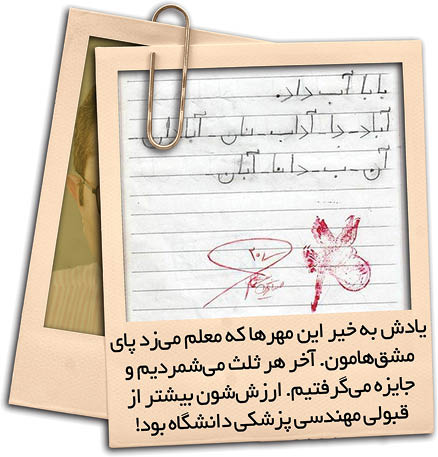 بابا آب داد.
آباد_دا_آداب_نان_آبادان
آن_ب_دانا_آبان_
۲۰
یادش به خیر این مهرها که معلم می‌زد پای
مشق‌هامون. آخر هر ثلث می‌شمردیم و
جایزه می‌گرفتیم. ارزش‌شون بیشتر از
قبولی مهندسی پزشکی دانشگاه بود!